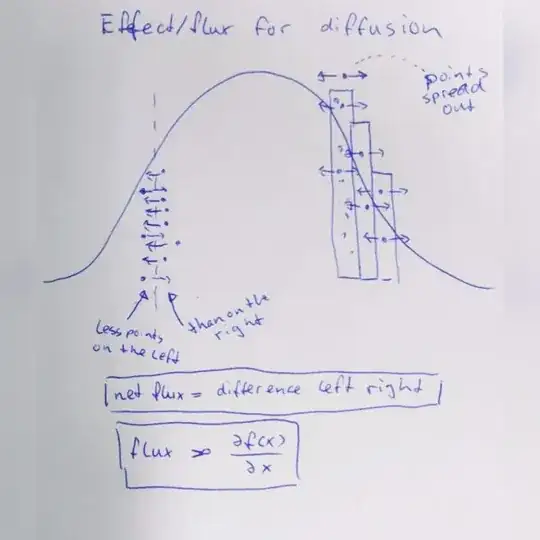 Effect/flux for diffusion
points
spread
out
less points
on the left
then on the
right
net flux = difference left right
flux ∝ ∂f(x)
∂x